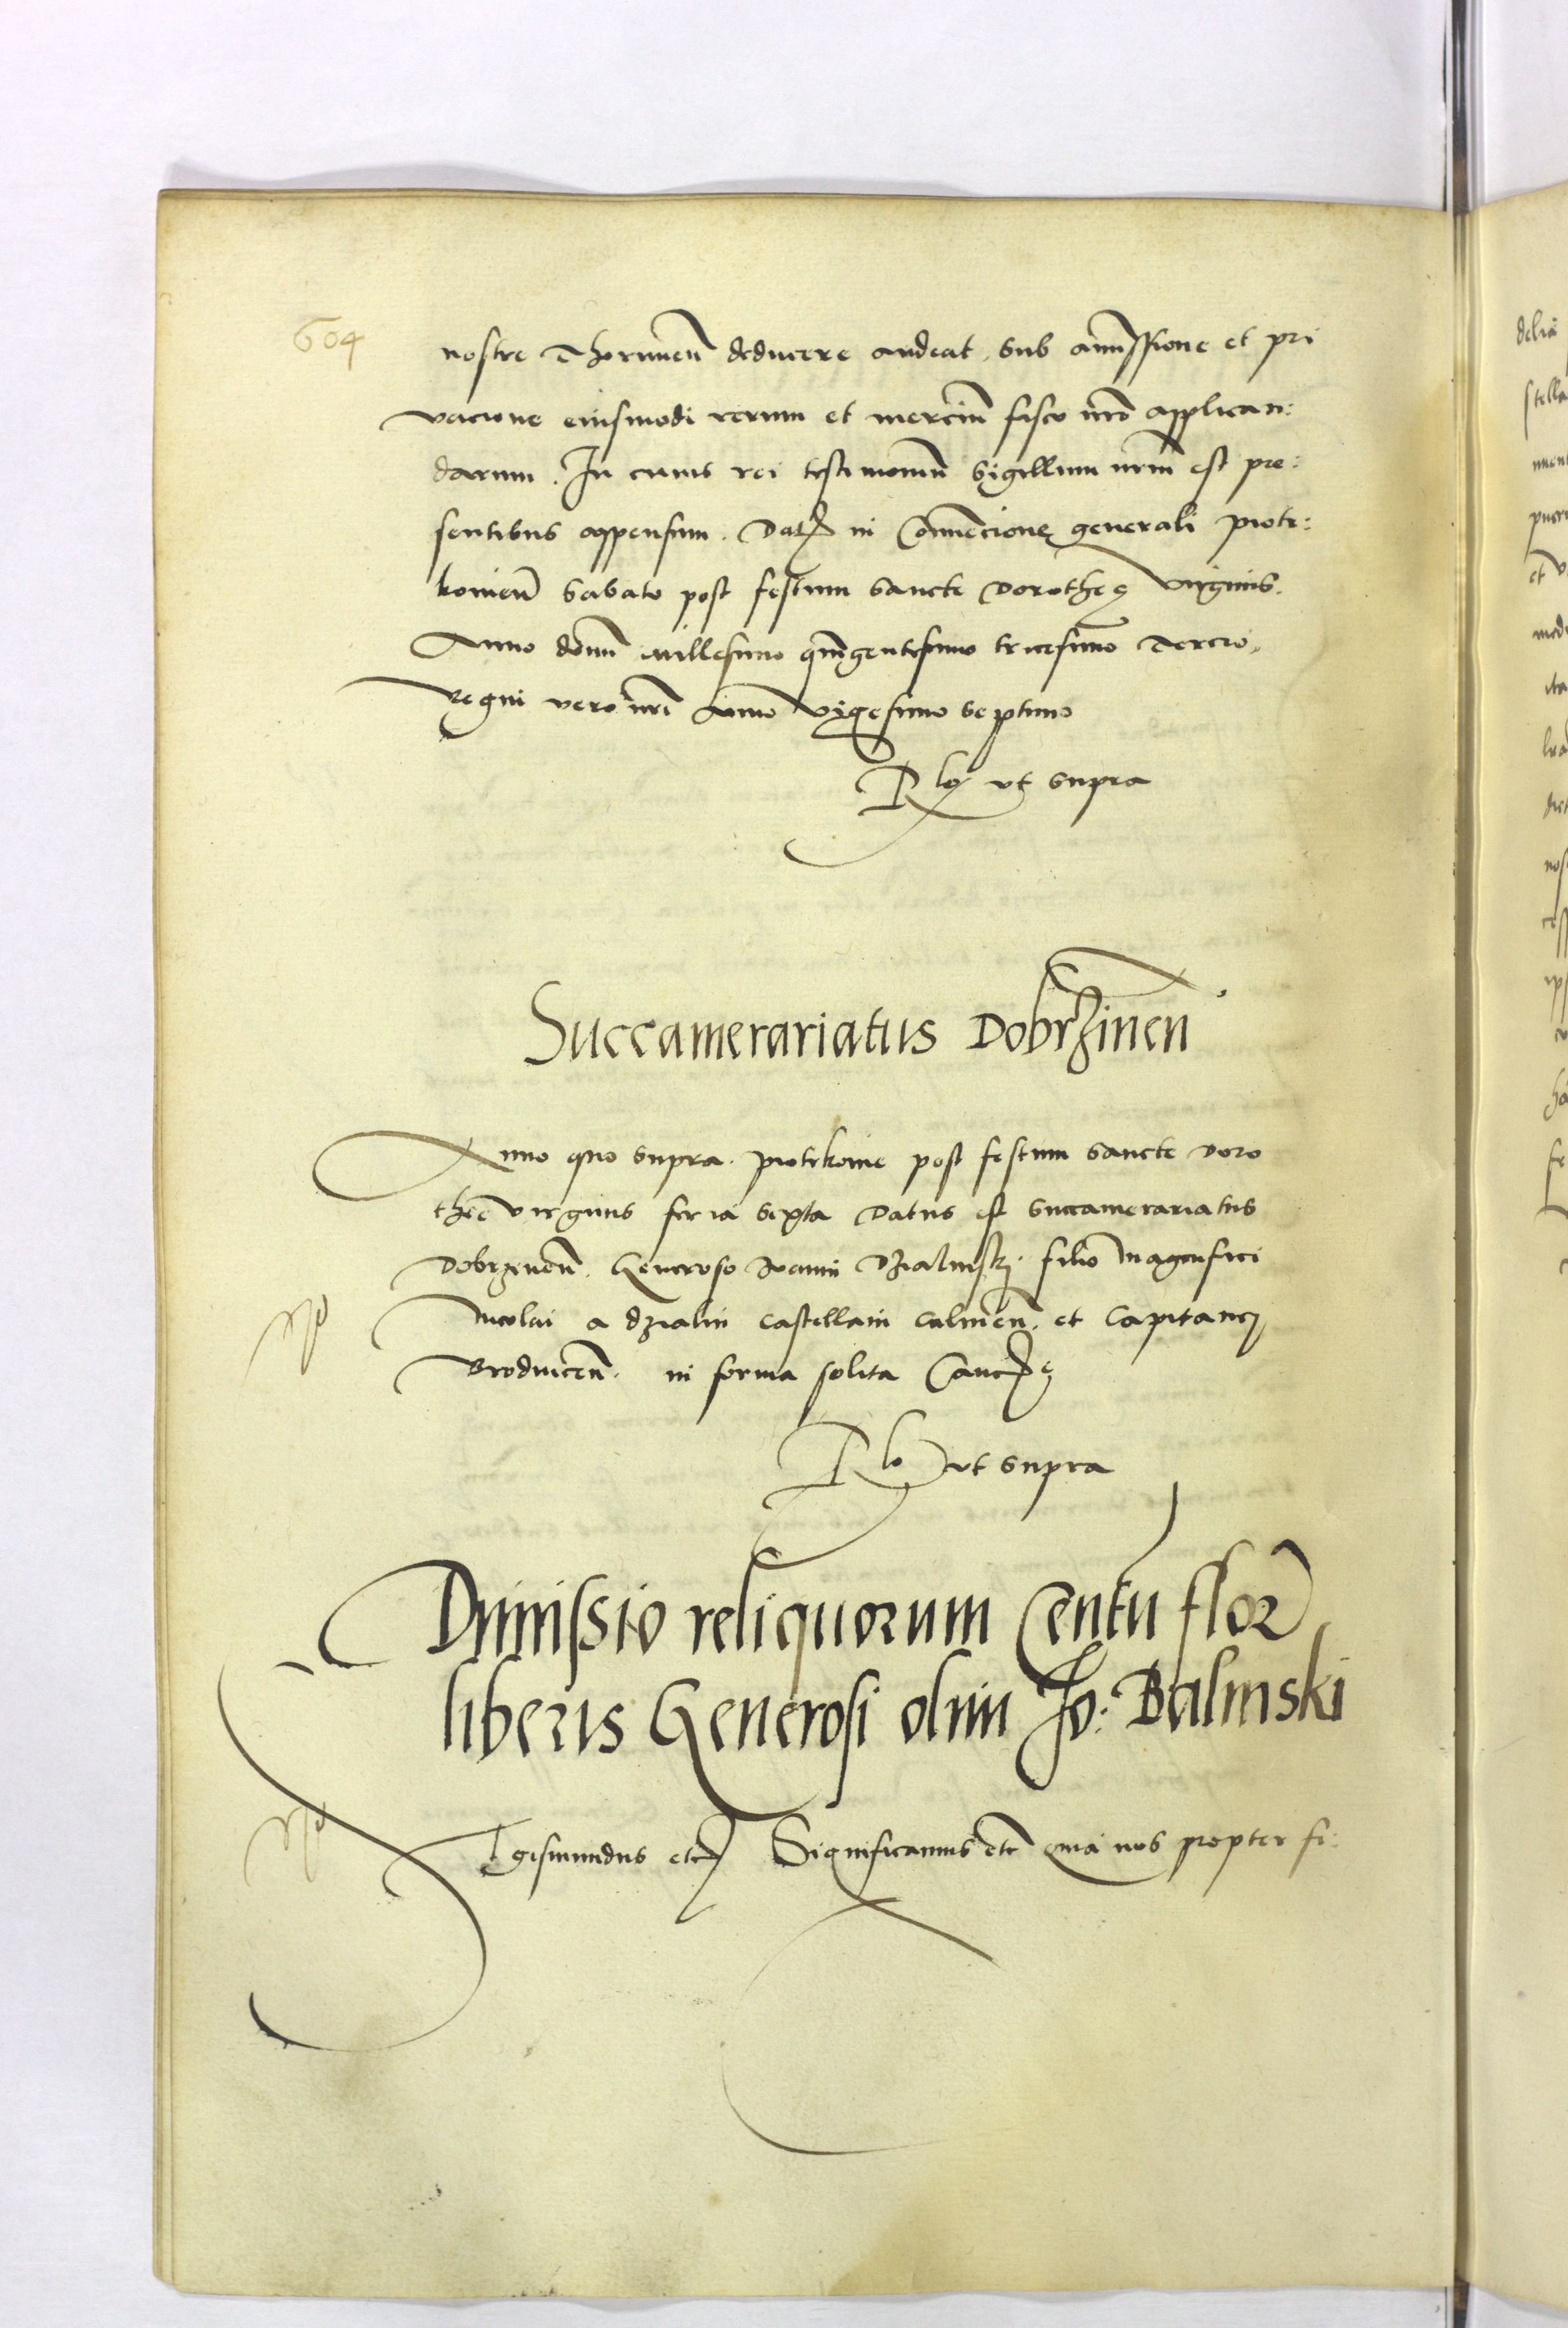 604
nostre Thorunen̄ deducere audeat, sub amissione et pri
vacione eiusmodi rerum et merciū fisco nr̄o applican:
darum. In cuius rei testimoniū Sigillum nr̄m est pre:
sentibus appensum. Dat in Convēcione generali Piotr:
kovien̄ Sabato post festum Sancte Dorotheę Virginis.
Anno domī millesimo quīgentesimo tricesimo Tercio,
Regni vero nr̄i Anno Vigesimo Septimo
Rlō ut supra
Succamerariatus Dobrzinen̄
Anno quo supra. Piotrkovie post festum Sancte Doro
thee virginis feria Sexta Datus est Succamerariatus
Dobrzinen̄. Generoso Joanni Dzialinski. filio Magnifici
Nicolai a dzialin Castellani Culmen̄. et Capitanei
Brodnicen̄. in forma solita Canc
Rlo ut supra
Dimissio reliquorum Centū flor
liberis Generosi olim Jo: Balinski
Sigismundus etc Significamus etc̄ quia nos propter fi: